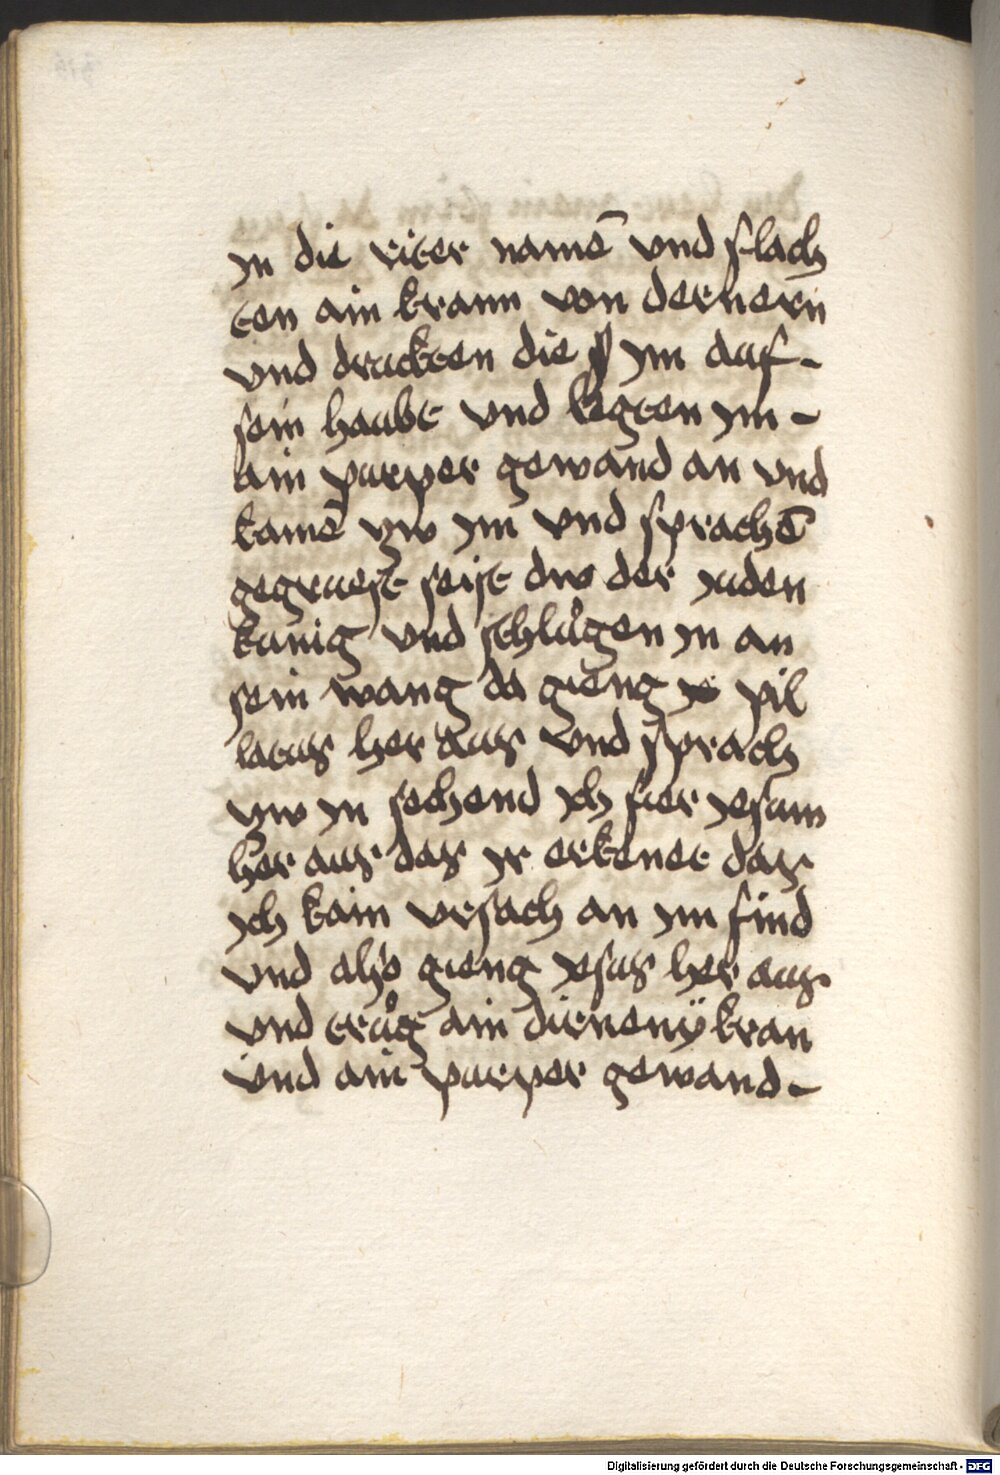 yn die riter namē vnd flach
ten ain krann von dernern
vnd druckten die ym auf-
sein haubt vnd legten ym-
ain purper gewand an vnd
kamē zw ym vnd sprachē
gegruest seist dw der juden
kunig vnd schlůgen yn an
sein wang da gieng pil
latus her aus vnd sprach
zw yn sechend ych fier yesum
her aus das yr erkenet das
ych kain vrsach an ym find
vnd also gieng yesus her aus
vnd trůg ain dirneny kran
vnd ain purper gewand-
Digitalisierung gefördert durch die Deutsche Forschungsgemeinschaft - DFG